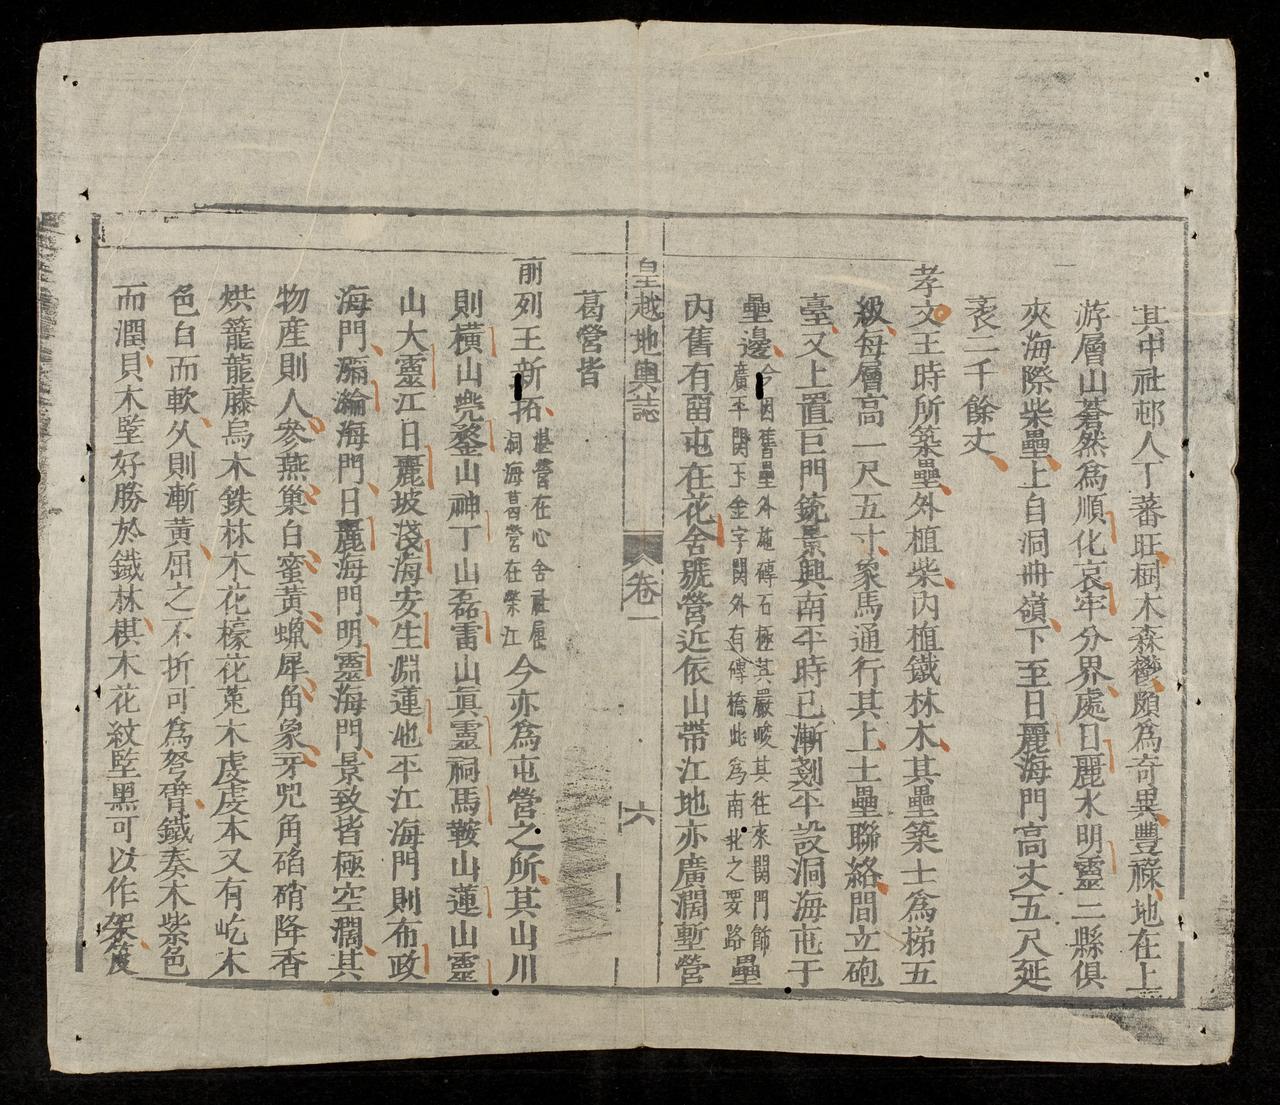 其中社邨人丁蕃旺樹木森欝頗為奇異豐祿地在上
游層山蒼然為順化哀牢分界處日麗水明靈二縣俱
夾海際柴壘上自洞冊嶺下至日麗海門高丈五尺延
袤二千餘丈
孝文王時所築壘外植柴內植鐵林木其壘築士為梯五
級每層高一尺五寸象馬通行其上土壘聯絡間立砲
臺又上置巨門銃景興南平時已漸剗平設洞海屯于
壘邊今因舊壘外施磚石極其嚴峻其往來関門飾
廣平関玉金字関外有磚橋此為南北之要路壘
內舊有畱屯在花舍號營近依山帶江地亦廣濶塹營
皇越地輿誌 卷一 六
葛營皆
前列王新拓塹營在心舍社
祠海葛營在柴江今亦為屯營之所其山川
則橫山兠鍪山神丁山磊雷山眞靈祠馬鞍山蓮山靈
山大靈江日麗坡淺海安生淵蓮池平江海門則布政
海門瀚海門日麗海門明靈海門景致皆極空濶其
物産則人參燕巢白蜜黃蠟犀角象牙兕角硝降香
烘籠龍藤烏木鉄林木花檬花菟木虔虔木又有屹木
色白而軟久則漸黃屈之不折可為弩臂鐵奏木紫色
而潤貝木堅好勝於鐵林棋木花紋堅黑可以作架筬